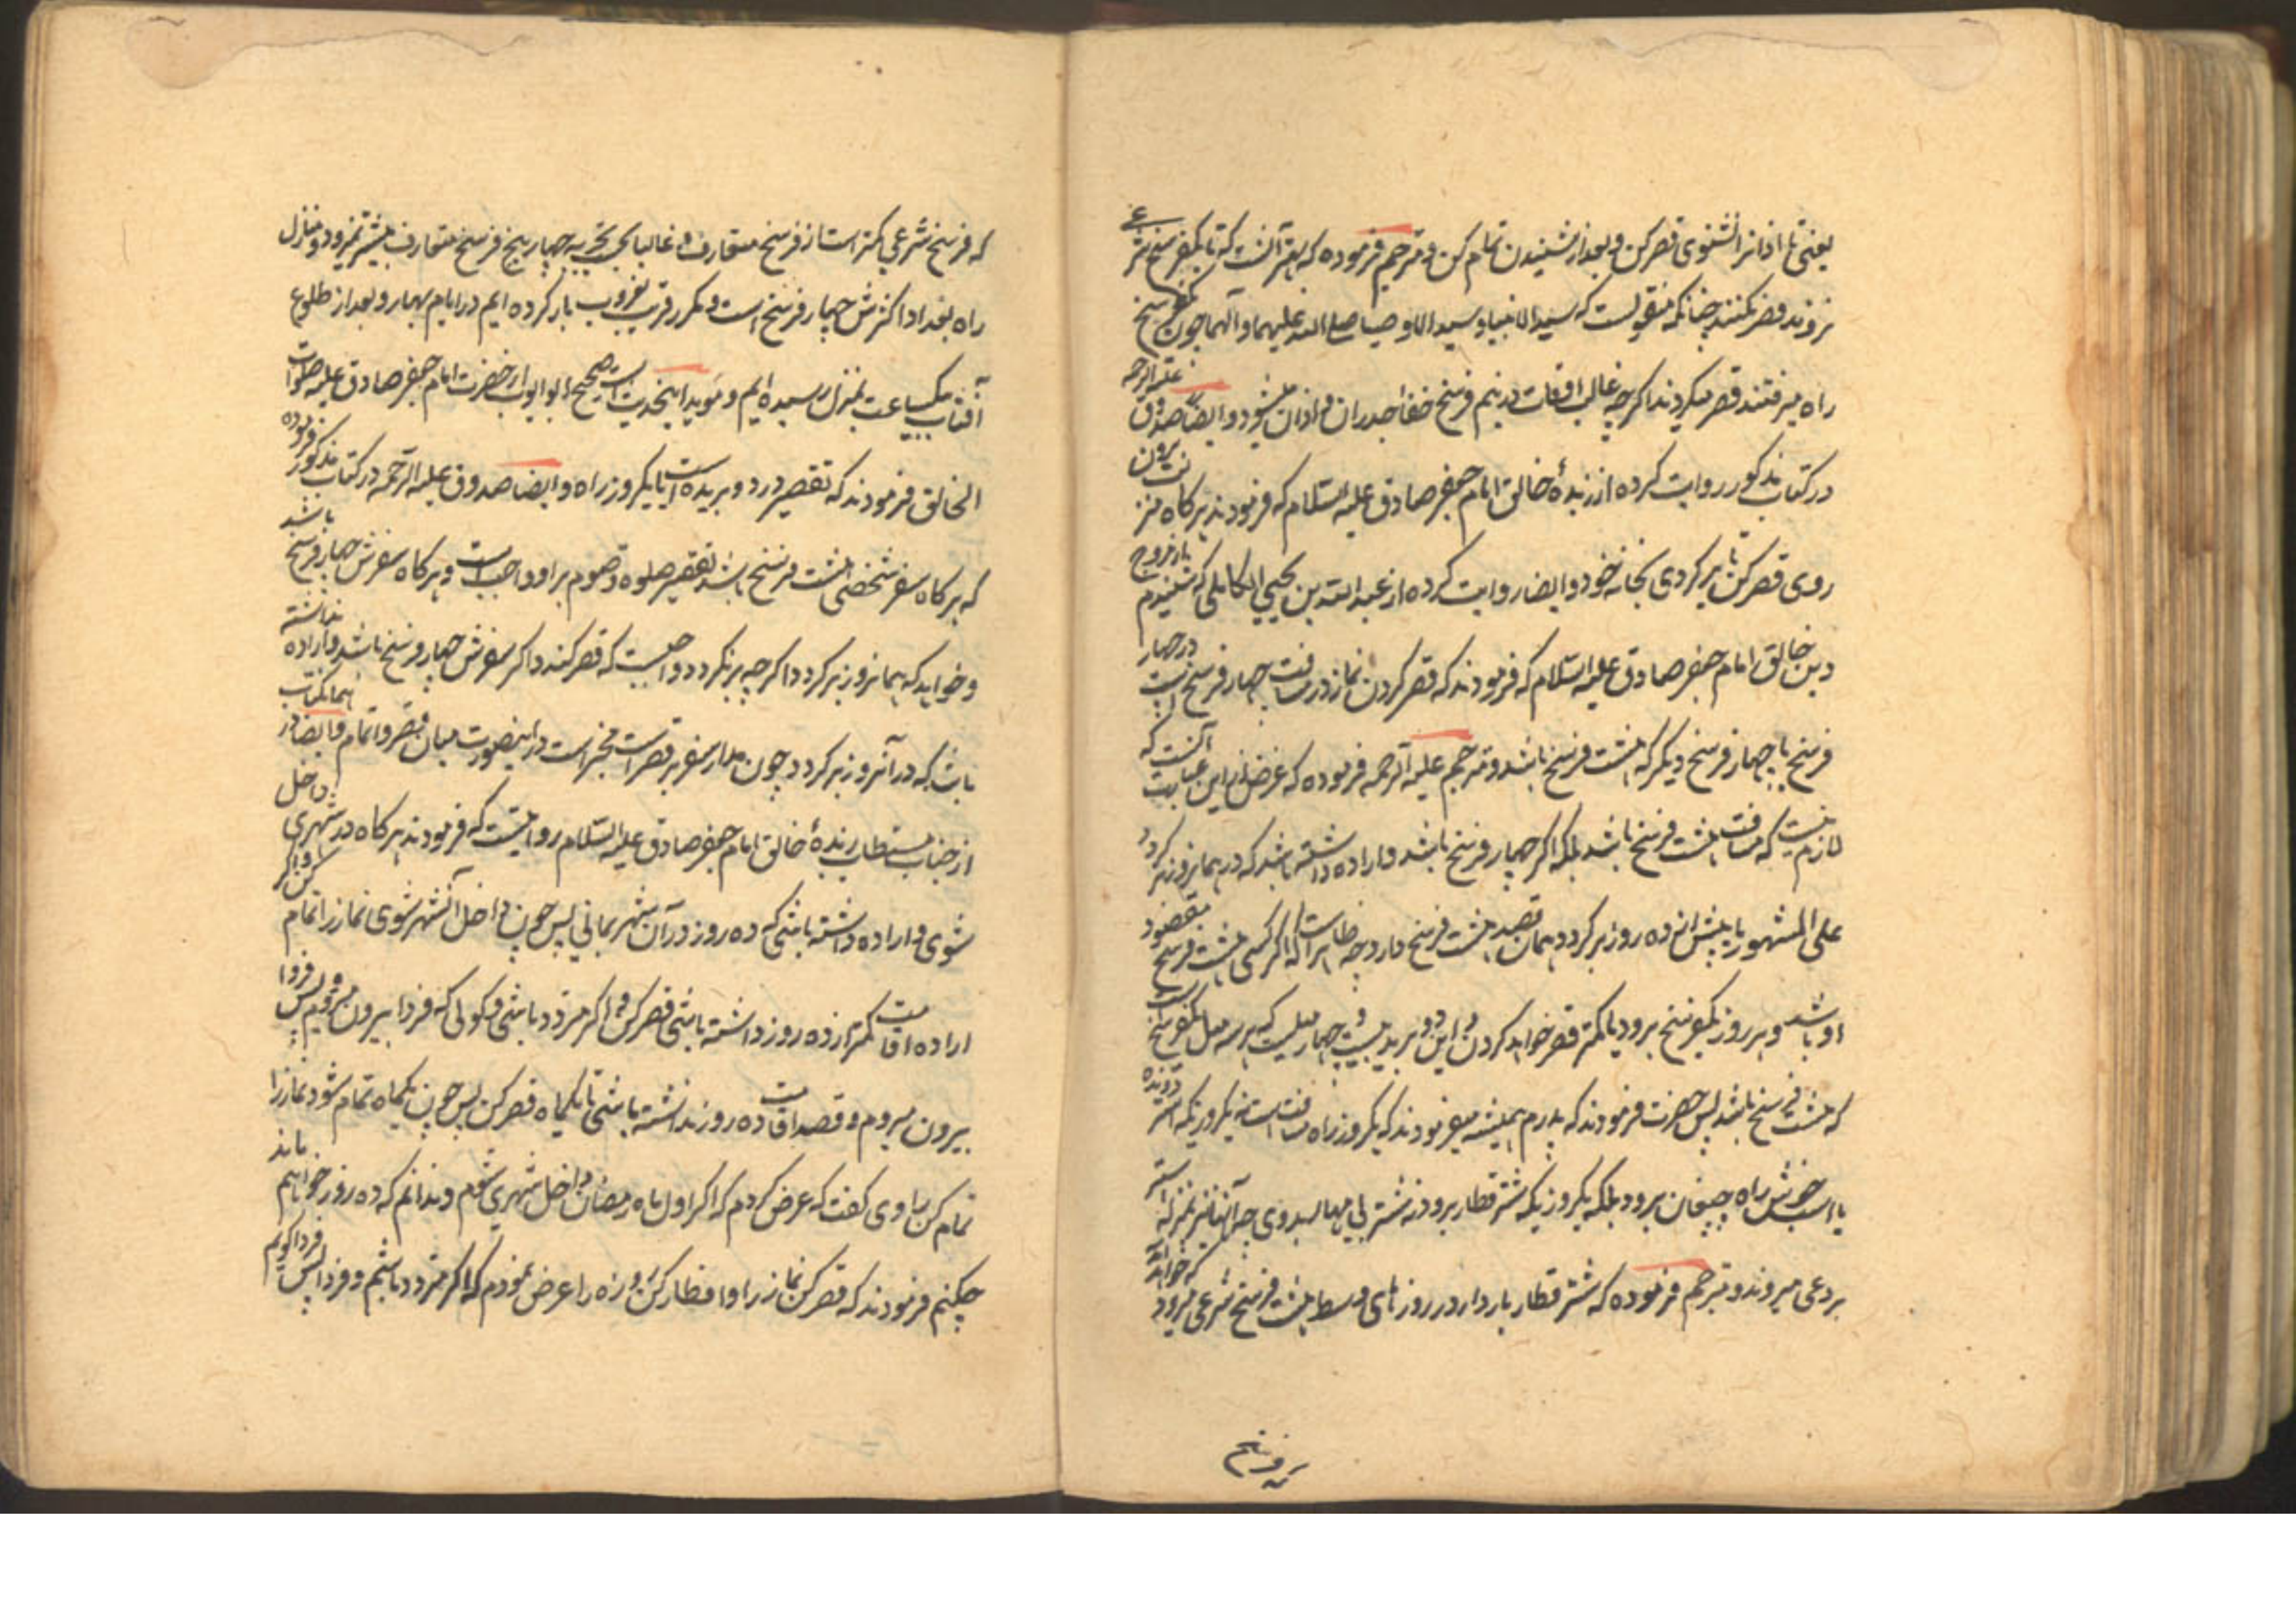 یعنی تا اذانرا نشنوی قصر کن و بعد از شنیدن تمام کن و مترجم فرموده که بهتر آنست که تا یکفرسخ شرعی
نروند قصر نکنند چنانکه منقولست که سید الانبیا و سید الاوصیا صلی الله علیهما و آلهما چون یکفرسخ
راه میرفتند قصر میکردند اگرچه غالب اوقات در نیم فرسخ خفا جدران و اذان میشود و ایضا صدوق علیه الرحمه
در کتاب مذکور روایت کرده از زبدهٔ خالق امام جعفر صادق علیه السلام که فرمودند هر گاه از منزلت بیرون
روی قصر کن تا بر گردی بخانه خود و ایضا روایت کرده از عبد الله بن یحیی الکاهلی که شنیدم
دین خالق امام جعفر صادق علیه السلام که فرمودند که قصر کردن نماز در مسافت چهار فرسخ است در چهار
فرسخ یا چهار فرسخ دیگر که هشت فرسخ باشد و مترجم علیه الرحمه فرموده که غرض از این عبارت آنست که
لازم نیست که مسافت هشت فرسخ باشد بلکه اگر چهار فرسخ باشد و اراده داشته باشد که در همانروز بر گردد
علی المشهور یا پیش از ده روز بر گردد همان قصد هشت فرسخ دارد چه ظاهر است که اگر کسی هشت فرسخ مقصود
او باشد و هر روز یکفرسخ برود یا کمتر قصر خواهد کردن و این دو برید بیست و چهار میلست که هر سه میل یکفرسخ است
که هشت فرسخ باشد پس حضرت فرمودند که پدرم همیشه میفرمودند که یکروز راه مسافت است نه یکروزیکه استر دونده
یا اسب خوش راه چیغان برود بلکه یکروزیکه شتر قطار برود نه شتر بی مهار
بردعی میروند و مترجم فرموده که شتر قطار باردار در روزهای وسط هشت فرسخ شرعی میرود
که فرسخ
که فرسخ شرعی کمتر است از فرسخ متعارف و غالبا بحسب تجربه چهار پنج فرسخ متعارف بیشتر نمیرود و منازل
راه بغداد اکثرش چهار فرسخ است و مکرر قریب بغروب بار کرده ایم در ایام بهار و بعد از طلوع
آفتاب بیکساعت بمنزل رسیده ایم و مؤید اینحدیث است صحیح ابو ایوب از حضرت امام جعفر صادق علیه صلوات
الخالق فرمودند که تقصیر در دو برید است یا یکروز راه و ایضا صدوق علیه الرحمه در کتاب مذکور فرموده
که هر گاه سفر شخصی هشت فرسخ باشد تقصیر صلوه و صوم بر او واجب است و هر گاه سفرش چهار فرسخ باشد
و خواهد که همانروز بر گردد اگرچه بر نگردد واجبست که قصر کند و اگر سفرش چهار فرسخ باشد و اراده نداشته
باشد که در آنروز بر گردد چون مدار سفر بر قصر است مخیر است در اینصورت میان قصر و اتمام و ایضا در همانکتاب
از جناب مستطاب زبدهٔ خالق امام جعفر صادق علیه السلام روایتست که فرمودند هر گاه در شهری داخل
شوی و اراده داشته باشی که ده روز در آن شهر بمانی پس چون داخل آنشهر شوی نماز را تمام کن و اگر
اراده اقامت کمتر از ده روز داشته باشی قصر کن و اگر متردد باشی و گوئی که فردا بیرون میرویم و پس فردا
بیرون میروم و قصد اقامت ده روز نداشته باشی تا یکماه قصر کن پس چون یکماه تمام شود نماز را
تمام کن راوی گفت که عرض کردم که اگر اول ماه رمضان داخل شهری شوم و ندانم که ده روز خواهم ماند
چکنم فرمودند که قصر کن نماز را و افطار کن روزه را عرض نمودم که اگر متردد باشم و فردا پس فردا گویم